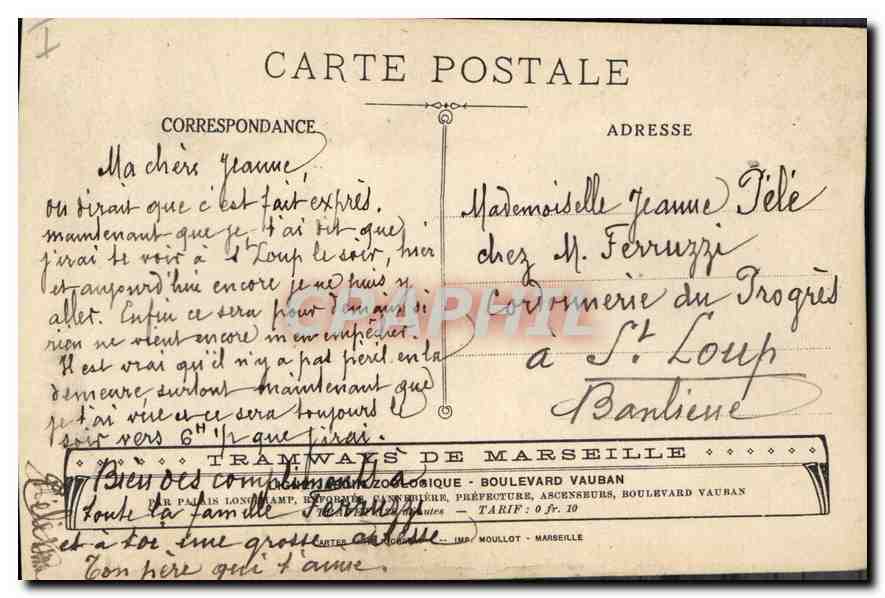 I
CARTE POSTALE
CORRESPONDANCE
Ma chère Jeanne,
on dirait que c'est fait exprès.
maintenant que je t'ai dit que
j'irai te voir à St Loup le soir, hier
et aujourd'hui encore je ne puis y
aller. Enfin ce sera pour demain si
rien ne vient encore m'en empêcher.
Il est vrai qu'il n'y a pas péril en la
demeure, surtout maintenant que
je t'ai vue et ce sera toujours le
soir vers 6H 1/2 que j'irai.
Bien des compliments à
toute la famille Ferruzzi
et à toi une grosse caresse
Ton père qui t'aime.
ADRESSE
Mademoiselle Jeanne Pélé
chez M. Ferruzzi
Cordonnerie du Progrès
à St. Loup
Banlieue
CARTOPHIL
TRAMWAYS DE MARSEILLE
ZOOLOGIQUE - BOULEVARD VAUBAN
PAR PALAIS LONGCHAMP, RÉFORMÉS, CANNEBIÈRE, PRÉFECTURE, ASCENSEURS, BOULEVARD VAUBAN
minutes — TARIF : 0 fr. 10
CARTES -- IMP. MOULLOT - MARSEILLE